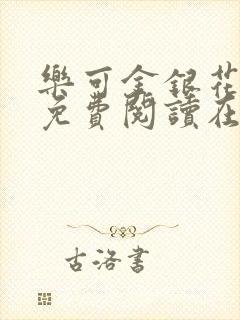 樂可金銀花
免費閱讀在
古洛書